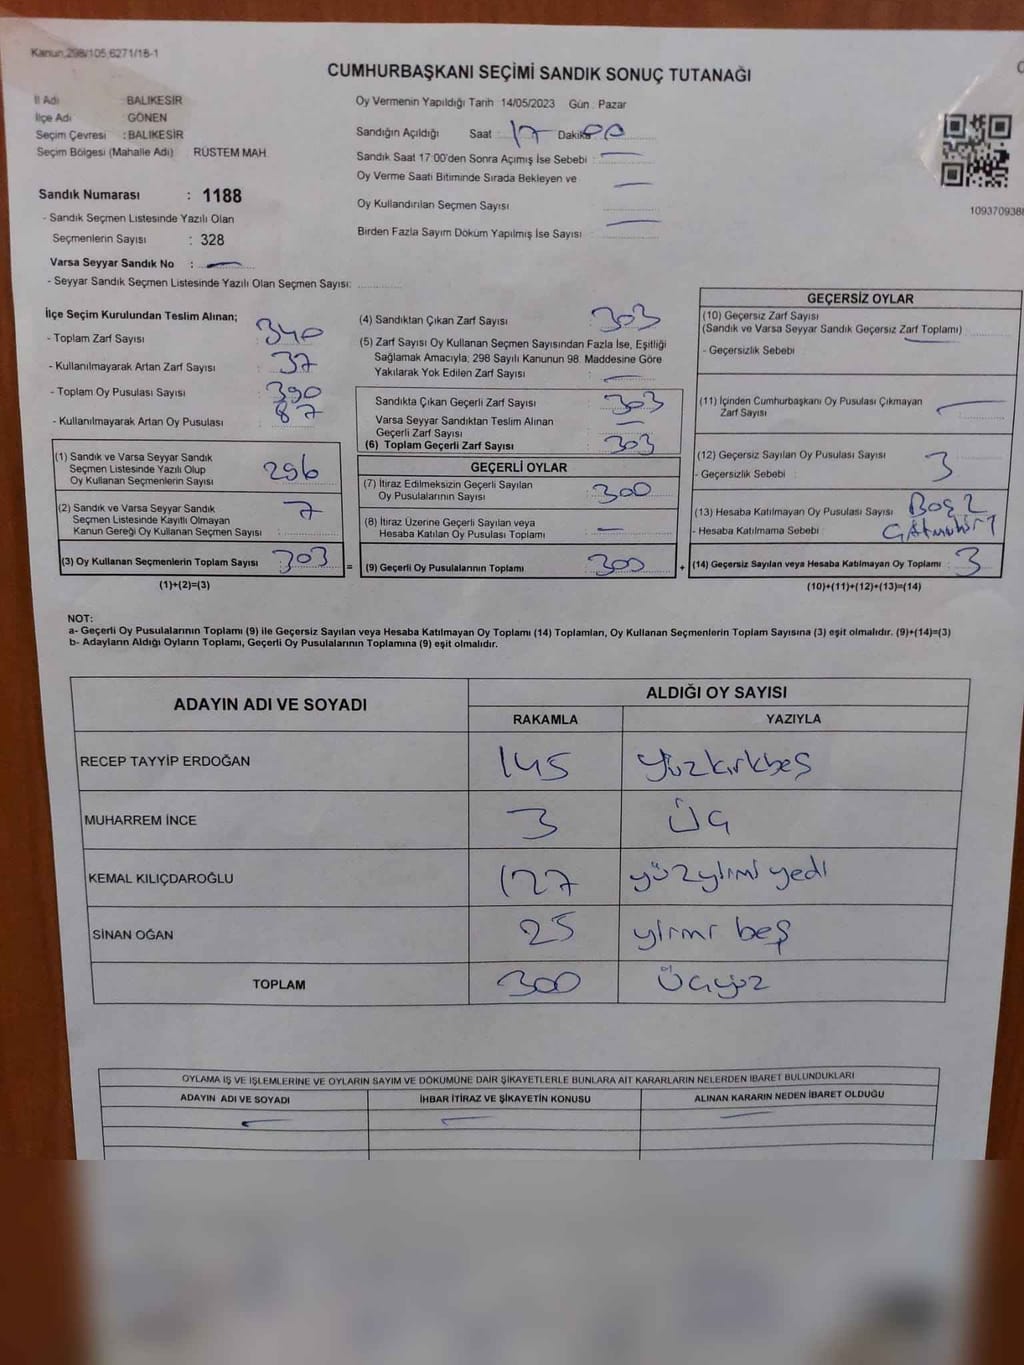 Kanun 298/105,6271/18-1
CUMHURBAŞKANI SEÇİMİ SANDIK SONUÇ TUTANAĞI
İl Adı : BALIKESİR
İlçe Adı : GÖNEN
Seçim Çevresi : BALIKESİR
Seçim Bölgesi (Mahalle Adı) RÜSTEM MAH.
Sandık Numarası : 1188
- Sandık Seçmen Listesinde Yazılı Olan
Seçmenlerin Sayısı : 328
Varsa Seyyar Sandık No : —
- Seyyar Sandık Seçmen Listesinde Yazılı Olan Seçmen Sayısı:
Oy Vermenin Yapıldığı Tarih 14/05/2023 Gün : Pazar
Sandığın Açıldığı Saat : 17 Dakika 00
Sandık Saat 17:00'den Sonra Açımış İse Sebebi : —
Oy Verme Saati Bitiminde Sırada Bekleyen ve
Oy Kullandırılan Seçmen Sayısı —
Birden Fazla Sayım Döküm Yapılmış İse Sayısı : —
1093709388
İlçe Seçim Kurulundan Teslim Alınan;
- Toplam Zarf Sayısı : 340
- Kullanılmayarak Artan Zarf Sayısı : 37
- Toplam Oy Pusulası Sayısı : 390
- Kullanılmayarak Artan Oy Pusulası : 87
(1) Sandık ve Varsa Seyyar Sandık
Seçmen Listesinde Yazılı Olup
Oy Kullanan Seçmenlerin Sayısı : 296
(2) Sandık ve Varsa Seyyar Sandık
Seçmen Listesinde Kayıtlı Olmayan
Kanun Gereği Oy Kullanan Seçmen Sayısı : 7
(3) Oy Kullanan Seçmenlerin Toplam Sayısı : 303 =
(1)+(2)=(3)
(4) Sandıktan Çıkan Zarf Sayısı : 303
(5) Zarf Sayısı Oy Kullanan Seçmen Sayısından Fazla İse, Eşitliği
Sağlamak Amacıyla, 298 Sayılı Kanunun 98. Maddesine Göre
Yakılarak Yok Edilen Zarf Sayısı : —
Sandıkta Çıkan Geçerli Zarf Sayısı : 303
Varsa Seyyar Sandıktan Teslim Alınan
Geçerli Zarf Sayısı : —
(6) Toplam Geçerli Zarf Sayısı : 303
GEÇERLİ OYLAR
(7) İtiraz Edilmeksizin Geçerli Sayılan
Oy Pusulalarının Sayısı : 300
(8) İtiraz Üzerine Geçerli Sayılan veya
Hesaba Katılan Oy Pusulası Toplamı : —
(9) Geçerli Oy Pusulalarının Toplamı : 300 +
GEÇERSİZ OYLAR
(10) Geçersiz Zarf Sayısı
(Sandık ve Varsa Seyyar Sandık Geçersiz Zarf Toplamı) : —
- Geçersizlik Sebebi :
(11) İçinden Cumhurbaşkanı Oy Pusulası Çıkmayan
Zarf Sayısı : —
(12) Geçersiz Sayılan Oy Pusulası Sayısı : 3
- Geçersizlik Sebebi :
(13) Hesaba Katılmayan Oy Pusulası Sayısı : Boş 2
- Hesaba Katılmama Sebebi : 1
(14) Geçersiz Sayılan veya Hesaba Katılmayan Oy Toplamı : 3
(10)+(11)+(12)+(13)=(14)
NOT:
a- Geçerli Oy Pusulalarının Toplamı (9) ile Geçersiz Sayılan veya Hesaba Katılmayan Oy Toplamı (14) Toplamları, Oy Kullanan Seçmenlerin Toplam Sayısına (3) eşit olmalıdır. (9)+(14)=(3)
b- Adayların Aldığı Oyların Toplamı, Geçerli Oy Pusulalarının Toplamına (9) eşit olmalıdır.
ADAYIN ADI VE SOYADI ALDIĞI OY SAYISI
RAKAMLA YAZIYLA
RECEP TAYYİP ERDOĞAN 145 yüzkırkbeş
MUHARREM İNCE 3 Üç
KEMAL KILIÇDAROĞLU 127 yüzyirmi yedi
SİNAN OĞAN 25 yirmi beş
TOPLAM 300 Üçyüz
OYLAMA İŞ VE İŞLEMLERİNE VE OYLARIN SAYIM VE DÖKÜMÜNE DAİR ŞİKAYETLERLE BUNLARA AİT KARARLARIN NELERDEN İBARET BULUNDUKLARI
ADAYIN ADI VE SOYADI İHBAR İTİRAZ VE ŞİKAYETİN KONUSU ALINAN KARARIN NEDEN İBARET OLDUĞU
— — —